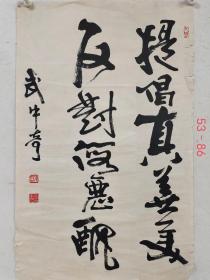 提倡真善美
反對假惡醜
武中奇
53-86